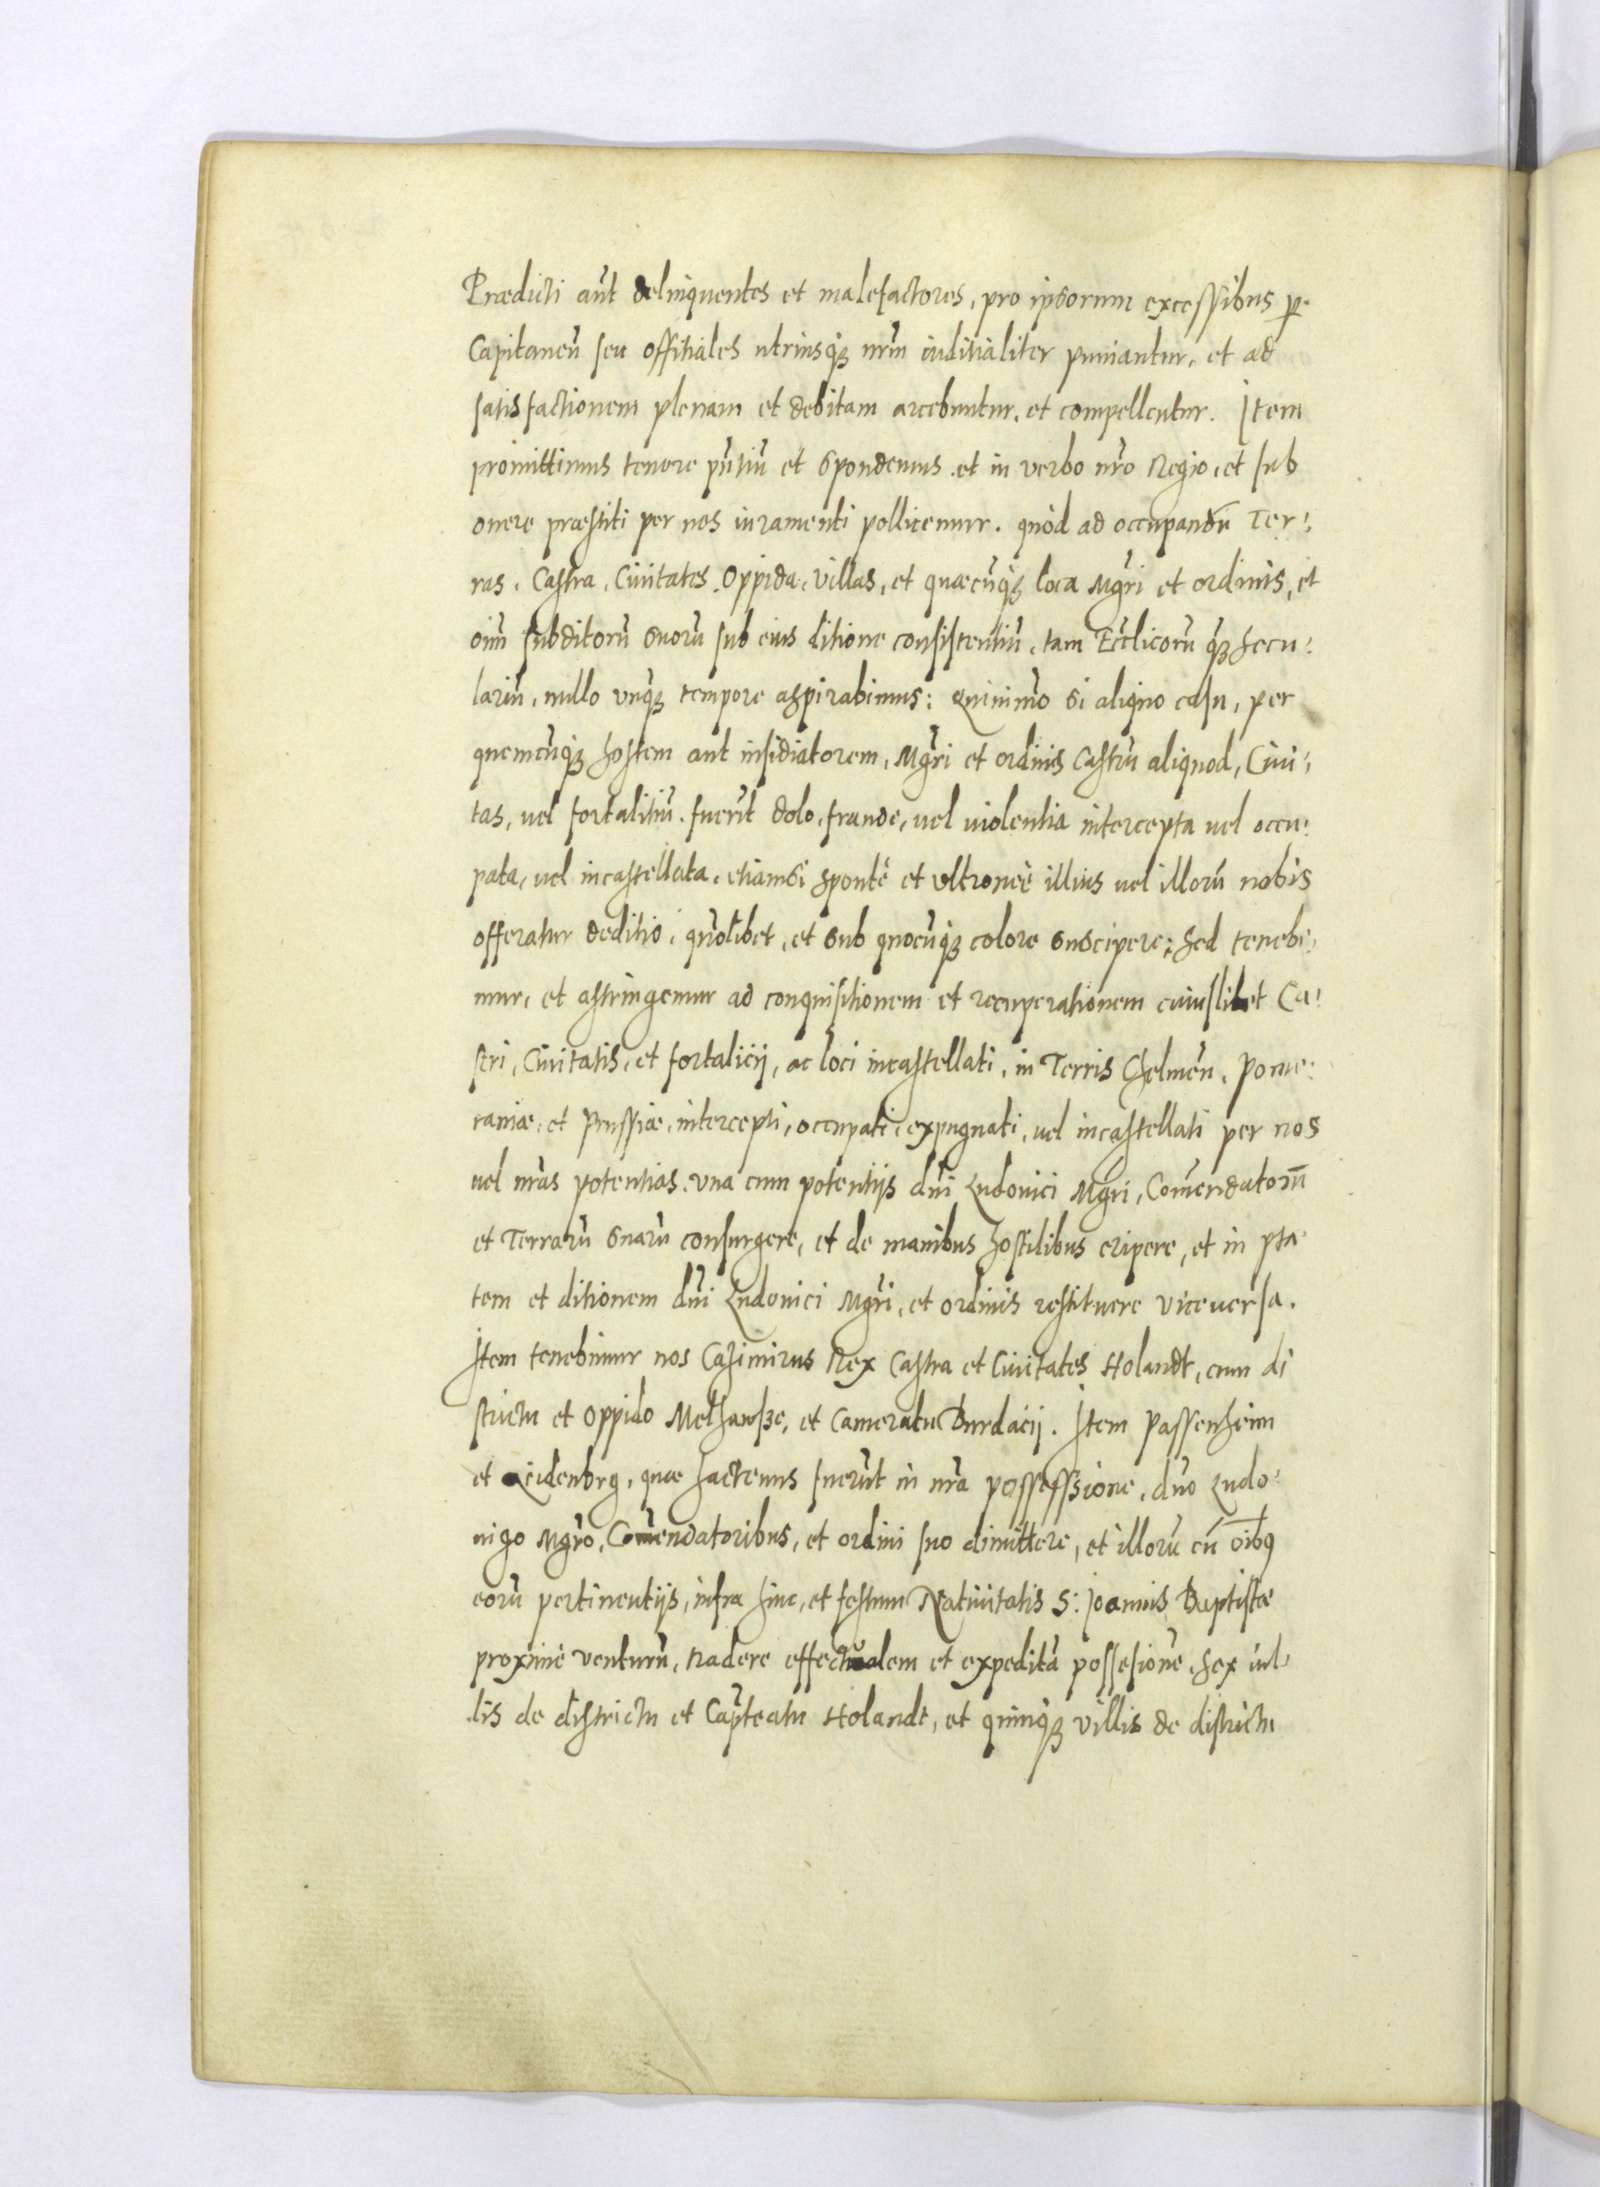 Prædicti aut̃ delinquentes et malefactores, pro ipsorum excessibus p̱
Capitaneũ seu offitiales utriusq̃ nr̃m iuditialiter puniantur, et ad
satisfactionem plenam et debitam arcebuntur, et compellentur. Item
promittimus tenore pñtiũ et spondemus, et in verbo nr̃o Regio, et sub
onere præstiti per nos iuramenti pollicemur. quòd ad occupandũ Ter:
ras, Castra, Ciuitates, Oppida, Villas, et quæcũq̃ loca Mgr̃i et ordinis, et
oĩm subditorũ suorũ sub eius ditione consistentiũ, tam Ecclicorũ q̃ secu:
lariũ, nullo vnq̃ tempore aspirabimus: Quinimò si aliquo casu, per
quemcũq̃ hostem aut insidiatorem, Mgr̃i et ordinis Castrũ aliquod, Ciui:
tas, vel fortalitiũ fuerit dolo, fraude, vel uiolentia intercepta uel occu:
pata, uel incastellata, etiamsi spontè et vltroneè illius uel illorũ nobis
offeratur deditio, quõlibet, et sub quocũq̃ colore suscipere; sed tenebi:
mur, et astringemur ad conquisitionem et recuperationem cuiuslibet Ca:
stri, Ciuitatis, et fortalicij, ac loci incastellati, in Terris Chelmeñ, Pome:
raniæ, et Prussiæ, intercepti, occupati, expugnati, uel incastellati per nos
uel nr̃as potentias, vna cum potentijs dñi Ludouici Mgr̃i, Com̃endatorũ
et Terrarũ suarũ consurgere, et de manibus hostilibus eripere, et in pta:
tem et ditionem dñi Ludouici Mgr̃i, et ordinis restituere viceuersa.
Item tenebimur nos Casimirus Rex Castra et Ciuitates Holandt, cum di
strictu et Oppido Melhawsze, et Cameratu Burdacij. Item Passenheim
et Neidenbrg, quæ hactenus fuerũt in nr̃a possessione, dño Ludo:
uigo Mgr̃o, Com̃endatoribus, et ordini suo dimittere, et illorũ cũ oĩbꝰ
eorũ pertinentijs, infra hinc, et festum Natiuitatis S: Joannis Baptistæ
proximè venturũ, tradere effectualem et expeditã possesionẽ, sex uil:
lis de districtu et Capt̃eatu Holandt, et quinq̃ villis de districtu